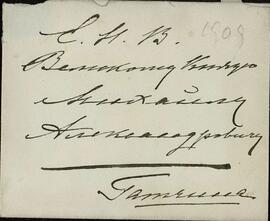 1909
Е. И. В.
Великому Князю
Михаилу
Александровичу
Гатчина